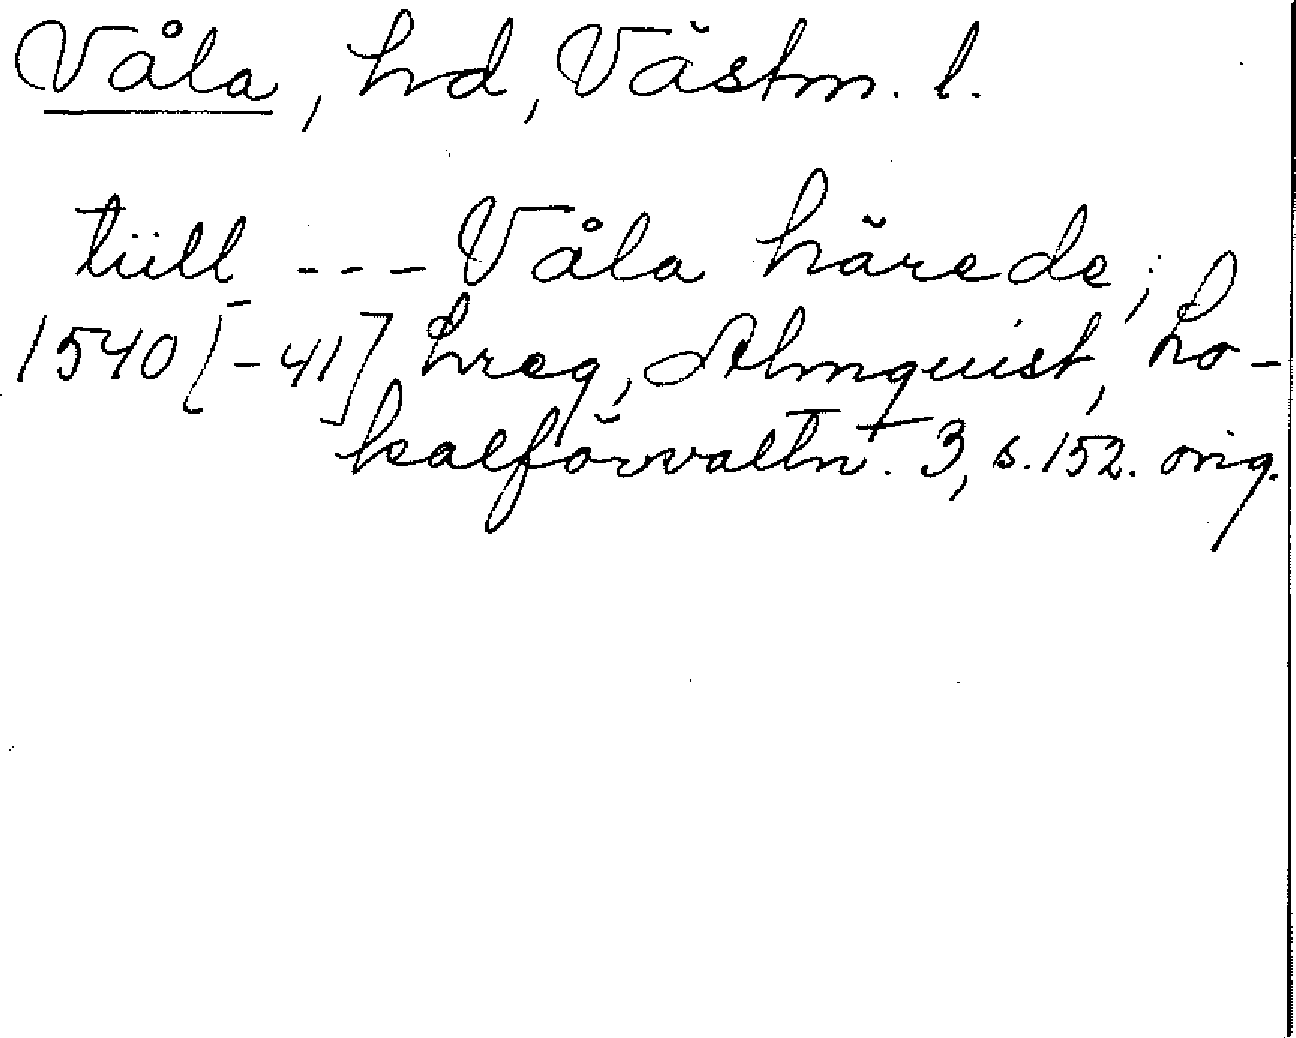 Våla, hd, Västm. l.
tiill --- Våla härede;
1540[-41] hreg, Almquist, Lo-
kalförvaltn. 3, s. 152. orig.